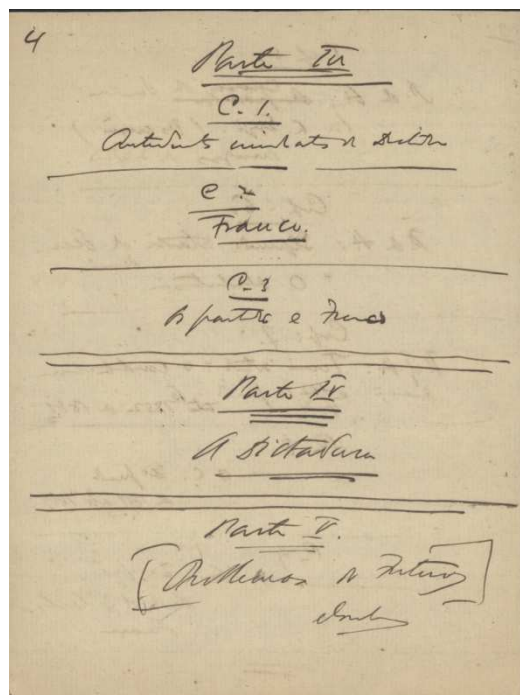 4
Parte III
C. 1.
Antecedentes immediatos da Dictadura
C 2
Franco.
C. 3
Os partidos e Franco
Parte IV
A Dictadura
Parte V.
[Problemas de Futuro]